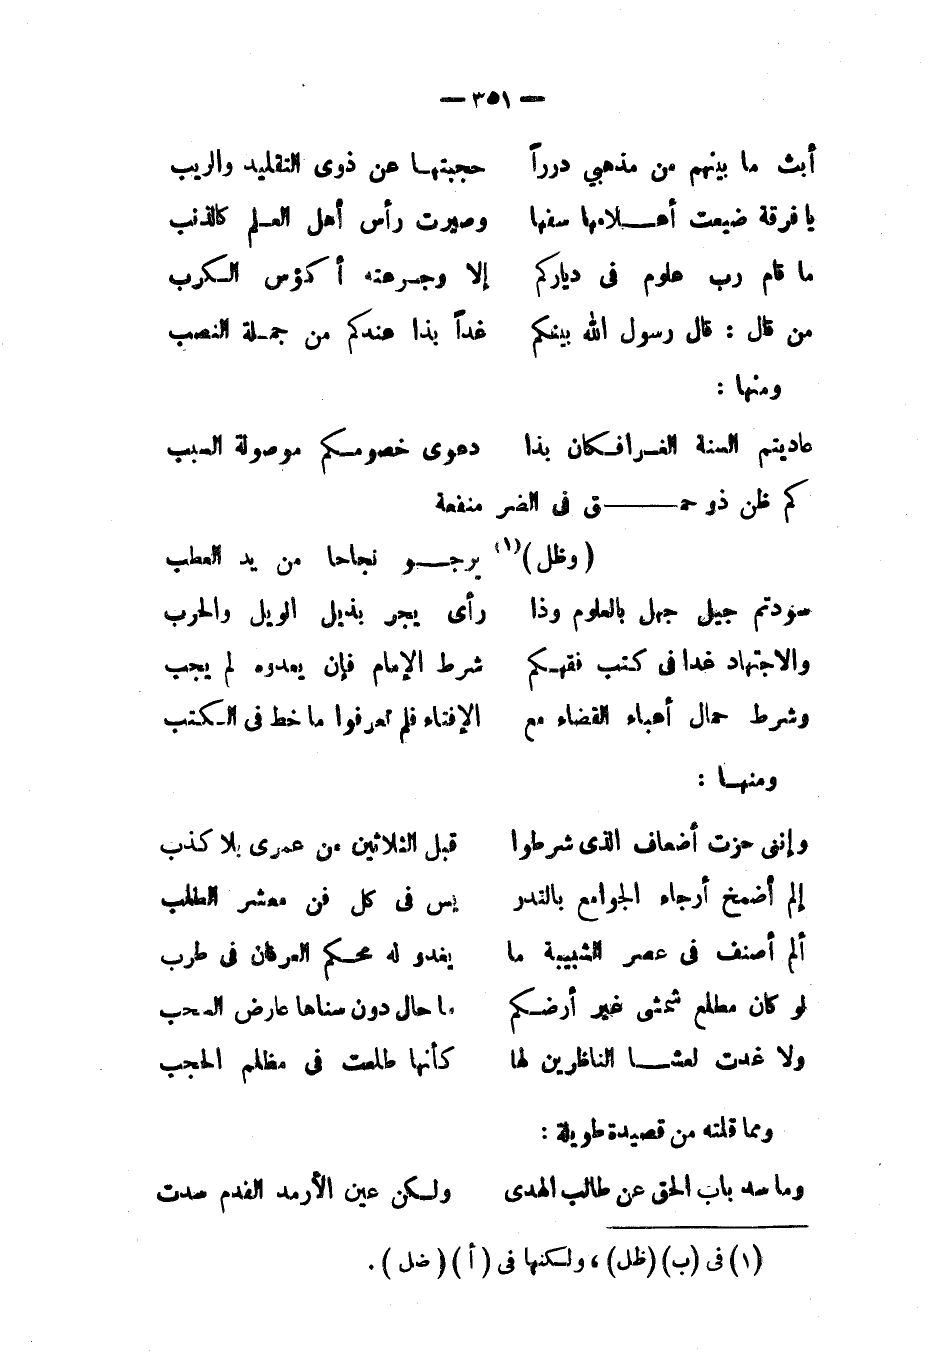 — ٣٥١ —
أبث ما بينهم من مذهبي درراً حجبتهـا عن ذوى التقليد والريب
يا فرقة ضيعت أحـــلامها سفها وصيرت رأس أهل العـلم كالذنب
ما قام رب علوم فى دياركم إلا وجـرعته أكؤس الـكرب
من قال : قال رسول الله بينكم غداً بذا عندكم من جمـلة النصب
ومنها :
عاديتم السنة الغـرا فـكان بذا دعوى خصومـكم موصولة السبب
كم ظن ذو حمـــــق فى الضر منفعة
(وظل)(١) يرجـــو نجاحا من يد العطب
سودتم جيل جهل بالعلوم وذا رأى يجر بذيل الويل والحرب
والاجتهاد غدا فى كتب فقهـكم شرط الإمام فإن يعدوه لم يجب
وشرط حمال أعباء القضاء مع الإفتاء فلم تعرفوا ما خط فى الـكتب
ومنهـا :
وإننى حزت أضعاف الذى شرطوا قبل الثلاثين من عمرى بلا كذب
إلم أضمخ أرجاء الجوامع بالتدر يس فى كل فن معشر الطلب
ألم أصنف فى عصر الشبيبة ما يغدو له محـكم العرفان فى طرب
لو كان مطلع شمسى غير أرضـكم ما حال دون سناها عارض السحب
ولا غدت لعشـــا الناظرين لها كأنها طلعت فى مظلم الحجب
ومما قلته من قصيدة طويلة :
وما سد باب الحق عن طالب الهدى ولـكن عين الأرمد الفدم سدت
(١) فى (ب) (ظل) ، ولـكنها فى (أ) (ضل) .